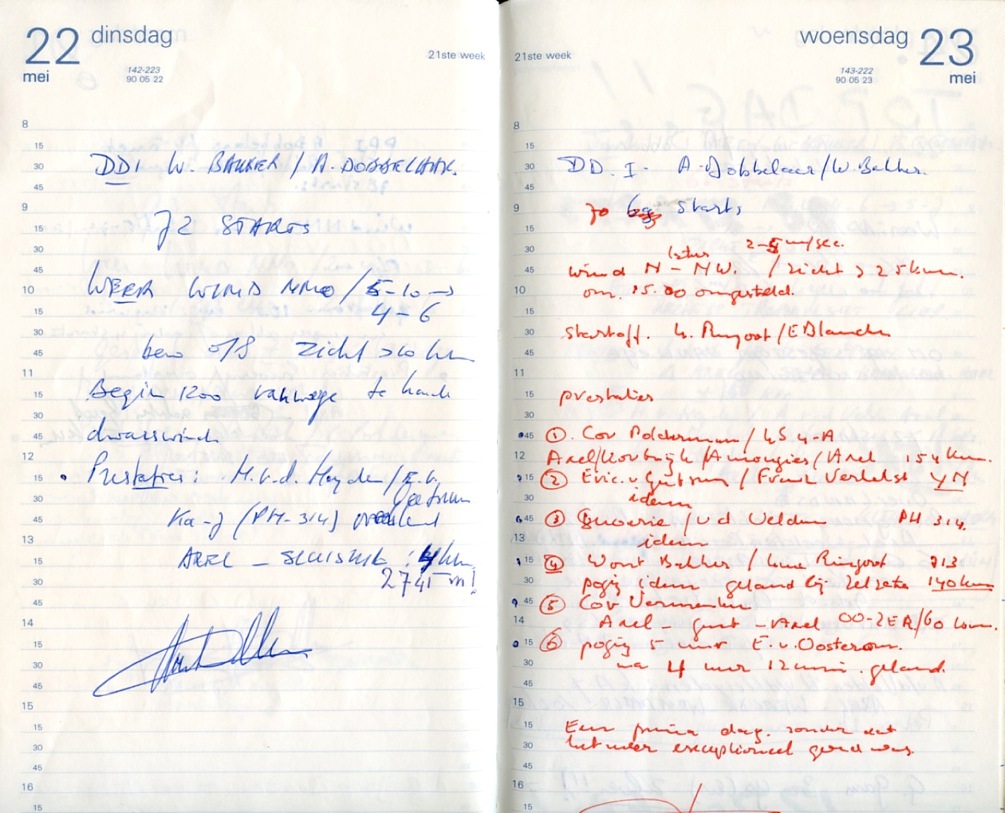 22 dinsdag
mei
142-223
90 05 22
21ste week
8
15
30 DDI W. BAKKER / A. DOBBELAAR.
45
9
72 STARTS
15
30
45
WEER WIND NNO / 5-10 →
10
4-6
15
30
45 0/8 Zicht >10 km
11
15 Begin 1200 vanwege te harde
30
45 dwarswind
12
15 • Prestaties: M.v.d. Heyden / E.v.
30 Oosterom
45 Ka-7 (PH-314)
13
15 AXEL - SLUISKIL : 4 km
30 2745 m!
45
14
15
30
45
15
15
30
45
16
15
woensdag 23
mei
143-222
90 05 23
21ste week
8
15
30 DD. I. A. Dobbelaer/W. Bakker.
45
9 70 69 starts
15
30 later 2-5 m/sec.
45 wind N - NW. / zicht > 25 km.
10 om 15.00 omgesteld.
15
30 startoff. L. Ringoot/E Blanche
45
11
15 prestaties
30
45 ① Cov Polderman / LS 4-A
12 Axel/Kortrijk/Amougies/Axel 154 km.
15 ② Eric v / Frank Verhelst YN
30 idem
45 ③ Brouerie / vd Velden PH 314.
13 idem
15 ④ Wout Bakker / Ringoot 713
30 pogig idem geland bij Zelzate 140 km
45 ⑤ Cov Vermeulen
14 Axel - gent - Axel OO-ZER/60 km.
15 ⑥ pogig 5 uur E. v. Oosterom.
30 na 4 uur 12 min. geland.
45
15
15 Een prima dag. zonder dat
30 het weer exceptioneel goed was.
45
16
15